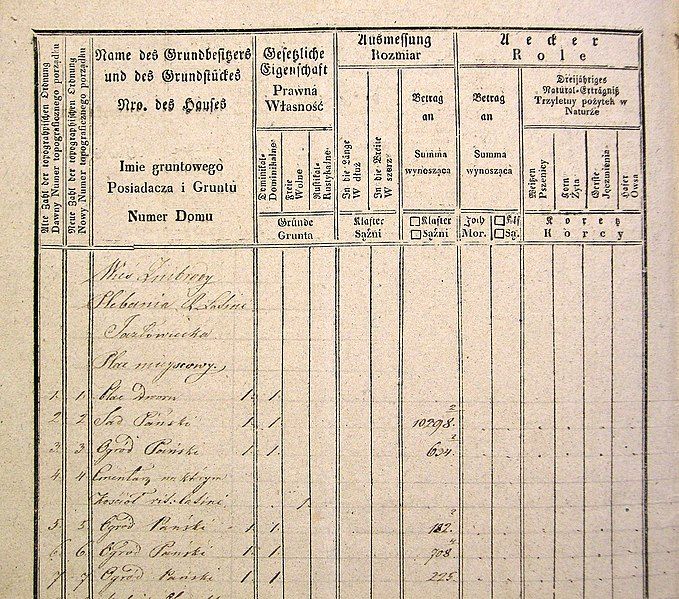 Alte Zahl der topographischen Ordnung
Dawny Numer topograficznego porządku
Neue Zahl der topographischen Ordnung
Nowy Numer topograficznego porządku
Name des Grundbesitzers
und des Grundstückes
Nro. des Hauses
Imie gruntowego
Posiadacza i Gruntu
Numer Domu
Gesetzliche
Eigenschaft
Prawna
Własność
Dominikal-
Dominikalne
Freie
Wolne
Rustikal-
Rustykalne
Gründe
Grunta
Ausmessung
Rozmiar
In die Länge
W dłuż
In die Breite
W szerz
Betrag
an
Summa
wynosząca
Klafter
Sążni
□ Klafter
□ Sążni
Aecker
Role
Betrag
an
Summa
wynosząca
Joch
Mor.
□ Klf.
□ Są.
Dreijähriges
Natural-Erträgniß
Trzyletny pożytek w
Naturze
Weitzen
Pszenicy
Korn
Żyta
Gerste
Jęczmienia
Haber
Owsa
Koretz
Korcy
Wieś
Plebania
Jazłowiecka
Plac miejscowy
1. 1. Plac Dworu 1. 1.
2. 2. Sad Pański 1. 1. 10298.
3. 3. Ogród Pański 1. 1. 634.
4. 4. Cmentarz na którym
Kościół rit. latini 1
5. 5. Ogród Pański 1. 1. 132.
6. 6. Ogród Pański 1. 1. 708
7. 7. Ogród Pański 1. 1. 225